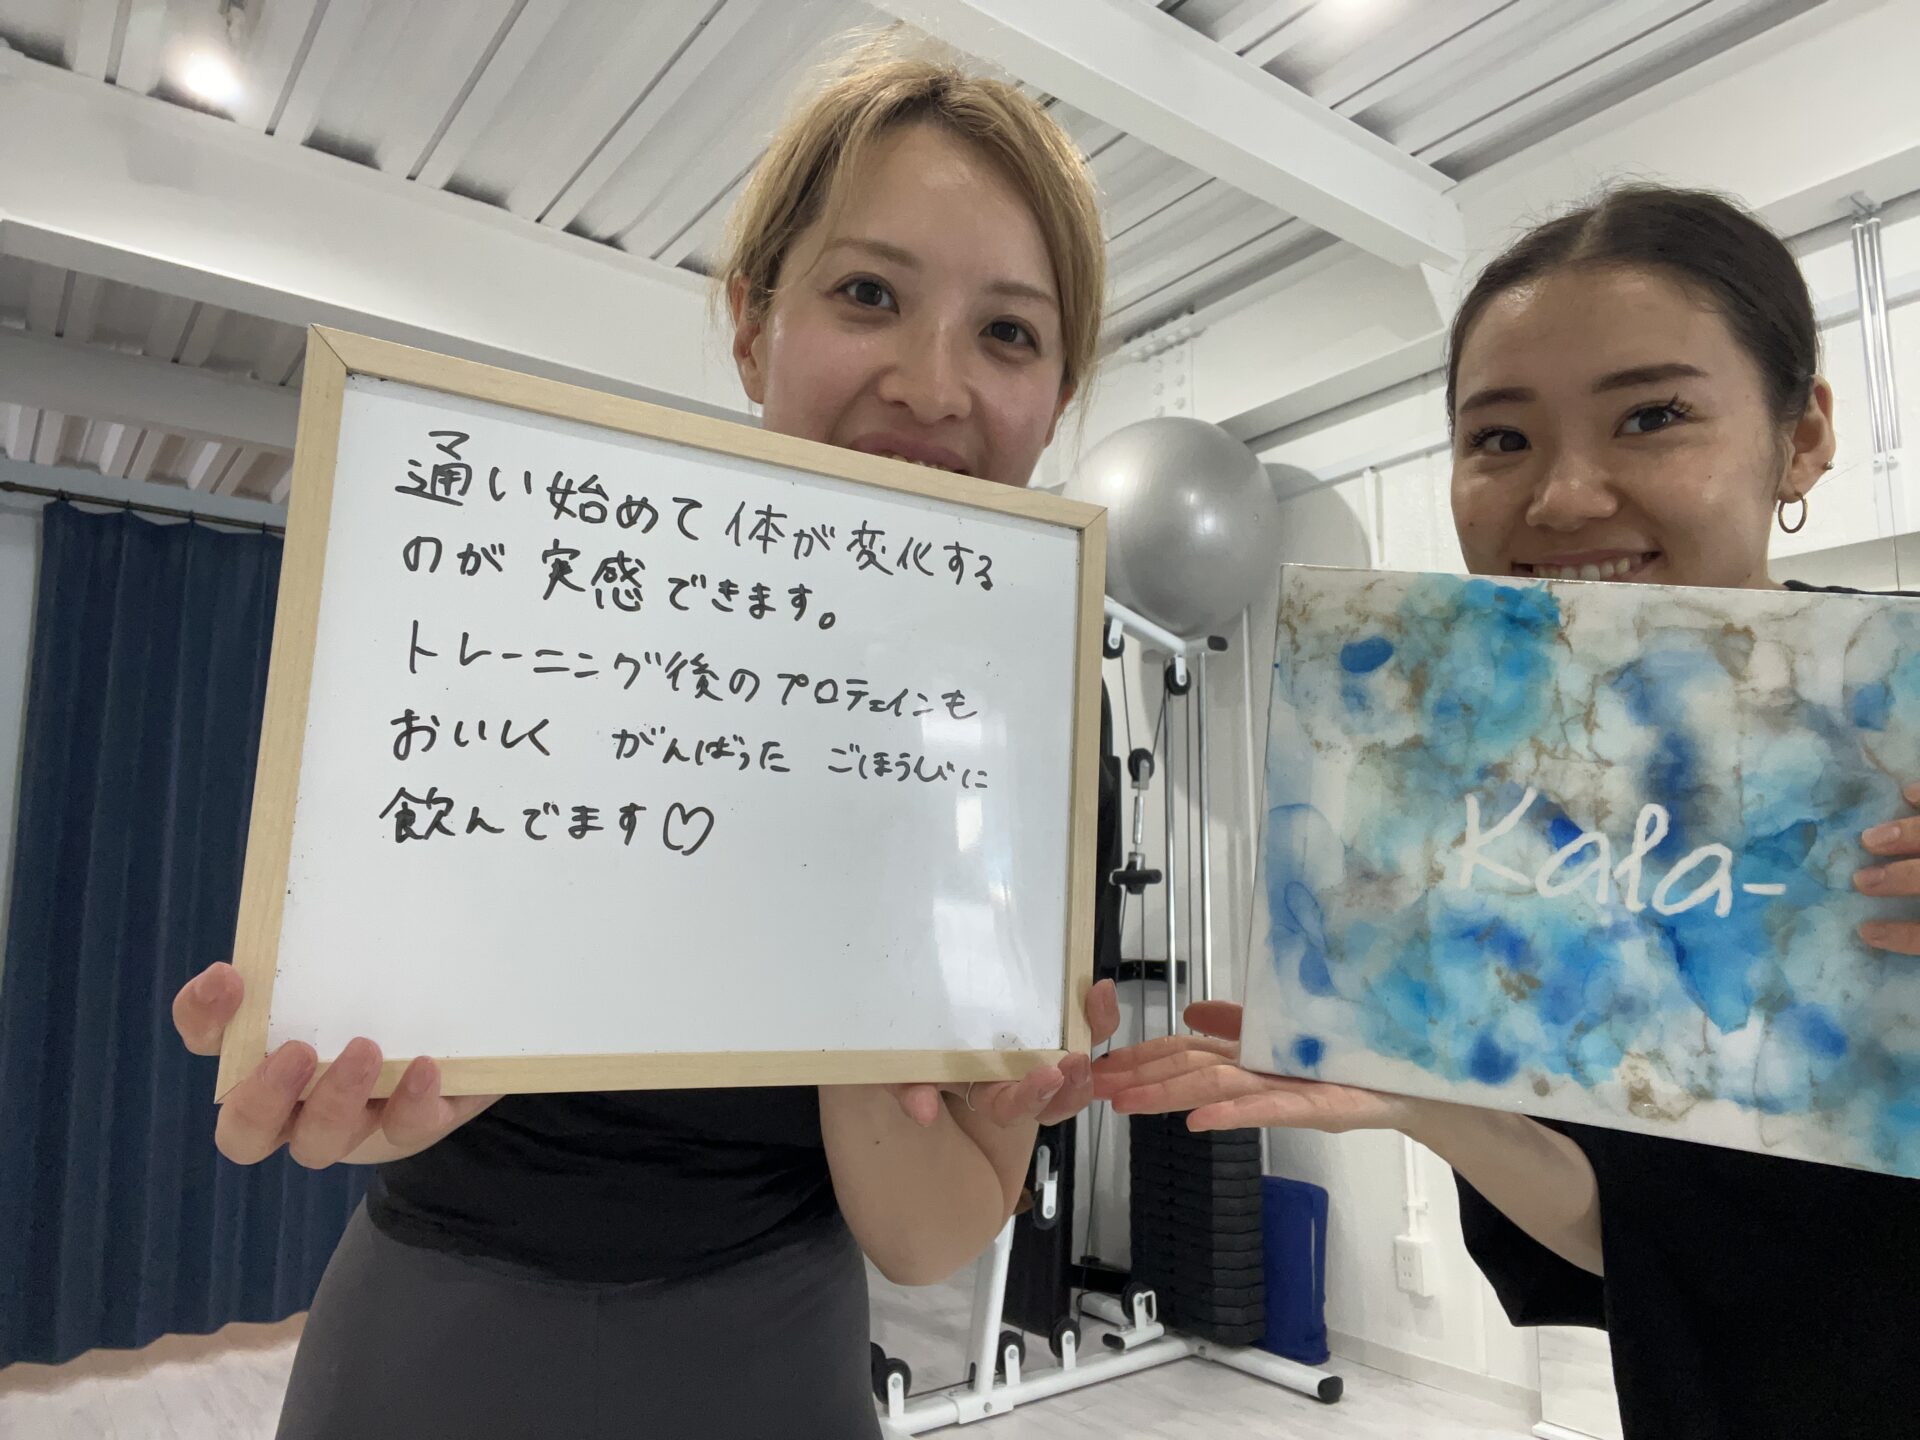 通い始めて体が変化する
のが 実感できます。
トレーニング後のプロテインも
おいしく がんばった ごほうびに
飲んでます♡
Kala-